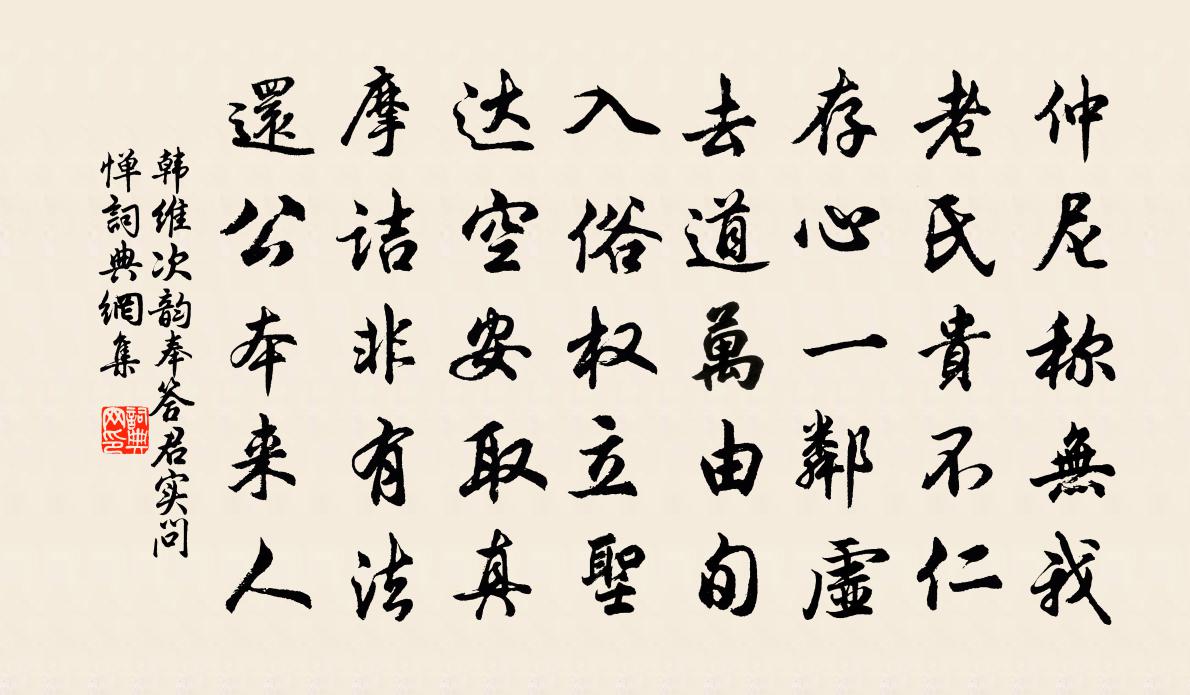 仲尼称無我
老氏貴不仁
存心一鄰虛
去道萬由旬
入俗权立聖
达空安取真
摩詰非有法
還公本来人
韩维次韵奉答君实问
惮詞典網集
詞典网印